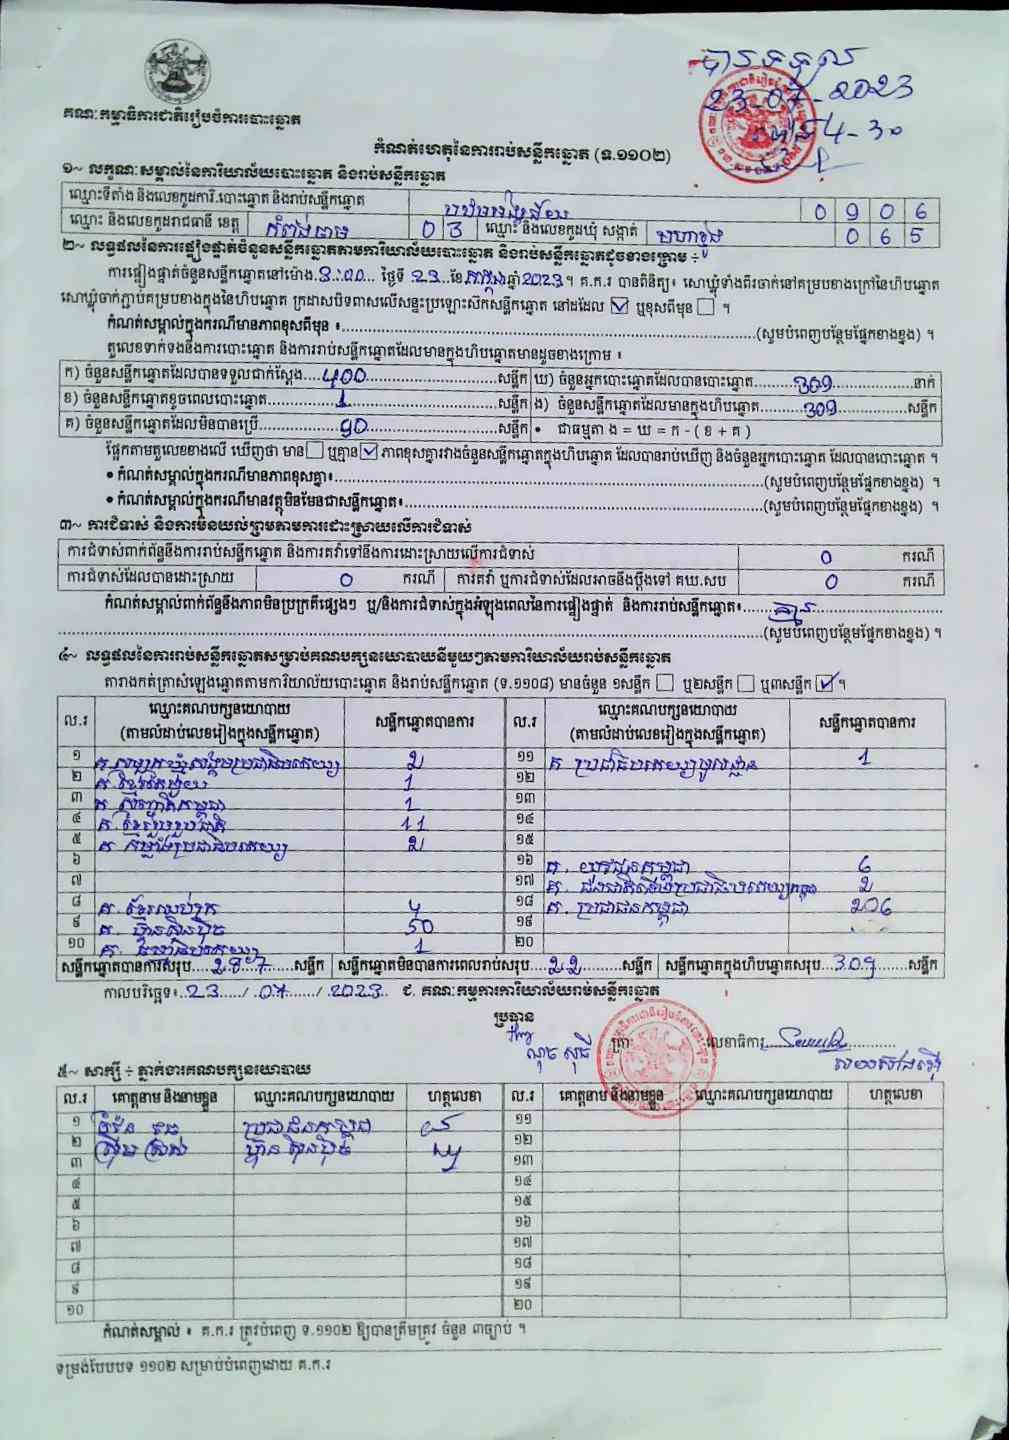 បានទទួល
23-07-2023
ម៉ោង 4-30
គណៈកម្មាធិការជាតិរៀបចំការបោះឆ្នោត
កំណត់ហេតុនៃការរាប់សន្លឹកឆ្នោត (ទ.១១០២)
១~ លក្ខណៈសម្គាល់នៃការិយាល័យបោះឆ្នោត និងរាប់សន្លឹកឆ្នោត
ឈ្មោះទីតាំង និងលេខកូដការិ.បោះឆ្នោត និងរាប់សន្លឹកឆ្នោត 0 9 0 6
ឈ្មោះ និងលេខកូដរាជធានី ខេត្ត កំពង់ចាម 0 3 ឈ្មោះ និងលេខកូដឃុំ សង្កាត់ 0 6 5
២~ លទ្ធផលនៃការផ្ទៀងផ្ទាត់ចំនួនសន្លឹកឆ្នោតតាមការិយាល័យបោះឆ្នោត និងរាប់សន្លឹកឆ្នោតដូចខាងក្រោម ÷
ការផ្ទៀងផ្ទាត់ចំនួនសន្លឹកឆ្នោតនៅម៉ោង.3:00... ថ្ងៃទី .23..ខែ កក្កដា ឆ្នាំ 2023។ គ.ក.រ បានពិនិត្យ៖ សោឃ្លុំទាំងពីរចាក់នៅគម្របខាងក្រៅនៃហិបឆ្នោត
សោឃ្លុំចាក់ភ្ជាប់គម្របខាងក្នុងនៃហិបឆ្នោត ក្រដាសបិទពាសលើសន្ទះប្រឡោះសិកសន្លឹកឆ្នោត នៅដដែល ☑ ឬខុសពីមុន ☐ ។
កំណត់សម្គាល់ក្នុងករណីមានភាពខុសពីមុន ៖..........(សូមបំពេញបន្ថែមផ្នែកខាងខ្នង) ។
តួលេខទាក់ទងនឹងការបោះឆ្នោត និងការរាប់សន្លឹកឆ្នោតដែលមានក្នុងហិបឆ្នោតមានដូចខាងក្រោម ៖
ក) ចំនួនសន្លឹកឆ្នោតដែលបានទទួលជាក់ស្តែង....400....សន្លឹក ឃ) ចំនួនអ្នកបោះឆ្នោតដែលបានបោះឆ្នោត....309....នាក់
ខ) ចំនួនសន្លឹកឆ្នោតខូចពេលបោះឆ្នោត....1....សន្លឹក ង) ចំនួនសន្លឹកឆ្នោតដែលមានក្នុងហិបឆ្នោត....309....សន្លឹក
គ) ចំនួនសន្លឹកឆ្នោតដែលមិនបានប្រើ....90....សន្លឹក • ជាធម្មតា ង = ឃ = ក - ( ខ + គ )
ផ្អែកតាមតួលេខខាងលើ ឃើញថា មាន ☐ ឬគ្មាន ☑ ភាពខុសគ្នារវាងចំនួនសន្លឹកឆ្នោតក្នុងហិបឆ្នោត ដែលបានរាប់ឃើញ និងចំនួនអ្នកបោះឆ្នោត ដែលបានបោះឆ្នោត ។
• កំណត់សម្គាល់ក្នុងករណីមានភាពខុសគ្នា៖..........(សូមបំពេញបន្ថែមផ្នែកខាងខ្នង) ។
• កំណត់សម្គាល់ក្នុងករណីមានវត្ថុមិនមែនជាសន្លឹកឆ្នោត៖..........(សូមបំពេញបន្ថែមផ្នែកខាងខ្នង) ។
៣~ ការជំទាស់ និងការមិនយល់ព្រមតាមការដោះស្រាយលើការជំទាស់
ការជំទាស់ពាក់ព័ន្ធនឹងការរាប់សន្លឹកឆ្នោត និងការតវ៉ាទៅនឹងការដោះស្រាយលើការជំទាស់ 0 ករណី
ការជំទាស់ដែលបានដោះស្រាយ 0 ករណី ការតវ៉ា ឬការជំទាស់ដែលអាចនឹងប្តឹងទៅ គឃ.សប 0 ករណី
កំណត់សម្គាល់ពាក់ព័ន្ធនឹងភាពមិនប្រក្រតីផ្សេងៗ ឬ/និងការជំទាស់ក្នុងអំឡុងពេលនៃការផ្ទៀងផ្ទាត់ និងការរាប់សន្លឹកឆ្នោត៖....គ្មាន....
..........(សូមបំពេញបន្ថែមផ្នែកខាងខ្នង) ។
៤~ លទ្ធផលនៃការរាប់សន្លឹកឆ្នោតសម្រាប់គណបក្សនយោបាយនីមួយៗតាមការិយាល័យរាប់សន្លឹកឆ្នោត
តារាងកត់ត្រាសំឡេងឆ្នោតតាមការិយាល័យបោះឆ្នោត និងរាប់សន្លឹកឆ្នោត (ទ.១១០៨) មានចំនួន ១សន្លឹក ☐ ឬ២សន្លឹក ☐ ឬ៣សន្លឹក ☑ ។
ល.រ ឈ្មោះគណបក្សនយោបាយ (តាមលំដាប់លេខរៀងក្នុងសន្លឹកឆ្នោត) សន្លឹកឆ្នោតបានការ ល.រ ឈ្មោះគណបក្សនយោបាយ (តាមលំដាប់លេខរៀងក្នុងសន្លឹកឆ្នោត) សន្លឹកឆ្នោតបានការ
១ គ.សំបុកឃ្មុំសង្គមប្រជាធិបតេយ្យ 2 ១១ គ. ប្រជាធិបតេយ្យមូលដ្ឋាន 1
២ គ. ខ្មែរតែមួយ 1 ១២
៣ គ. 1 ១៣
៤ គ. ខ្មែររួបរួមជាតិ 11 ១៤
៥ គ. កម្លាំងប្រជាធិបតេយ្យ 2 ១៥
៦ ១៦ គ. យុវជនកម្ពុជា 6
៧ ១៧ គ. ជនជាតិដើមប្រជាធិបតេយ្យកម្ពុជា 2
៨ គ. ខ្មែរឈប់ក្រ 4 ១៨ គ. ប្រជាជនកម្ពុជា 206
៩ គ. ហ្វ៊ុនស៊ិនប៉ិច 50 ១៩
១០ គ. 1 ២០
សន្លឹកឆ្នោតបានការសរុប....287....សន្លឹក សន្លឹកឆ្នោតមិនបានការពេលរាប់សរុប...22....សន្លឹក សន្លឹកឆ្នោតក្នុងហិបឆ្នោតសរុប..309....សន្លឹក
កាលបរិច្ឆេទ៖..23..../..07..../.2023.. ជ. គណៈកម្មការការិយាល័យរាប់សន្លឹកឆ្នោត
ប្រធាន
ត្រា លេខាធិការ
ណុច ស៊ុធី
៥~ សាក្សី ÷ ភ្នាក់ងារគណបក្សនយោបាយ
ល.រ គោត្តនាម និងនាមខ្លួន ឈ្មោះគណបក្សនយោបាយ ហត្ថលេខា ល.រ គោត្តនាម និងនាមខ្លួន ឈ្មោះគណបក្សនយោបាយ ហត្ថលេខា
១ ប្រជាជនកម្ពុជា ១១
២ ហ្វ៊ុនស៊ិនប៉ិច ១២
៣ ១៣
៤ ១៤
៥ ១៥
៦ ១៦
៧ ១៧
៨ ១៨
៩ ១៩
១០ ២០
កំណត់សម្គាល់ ៖ គ.ក.រ ត្រូវបំពេញ ទ.១១០២ ឱ្យបានត្រឹមត្រូវ ចំនួន ៣ច្បាប់ ។
ទម្រង់បែបបទ ១១០២ សម្រាប់បំពេញដោយ គ.ក.រ